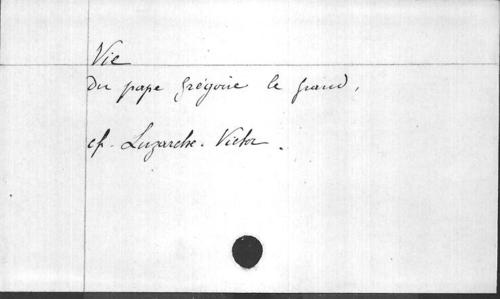 Vie
du pape Grégoire le grand,
cf. Luzarche. Victor.